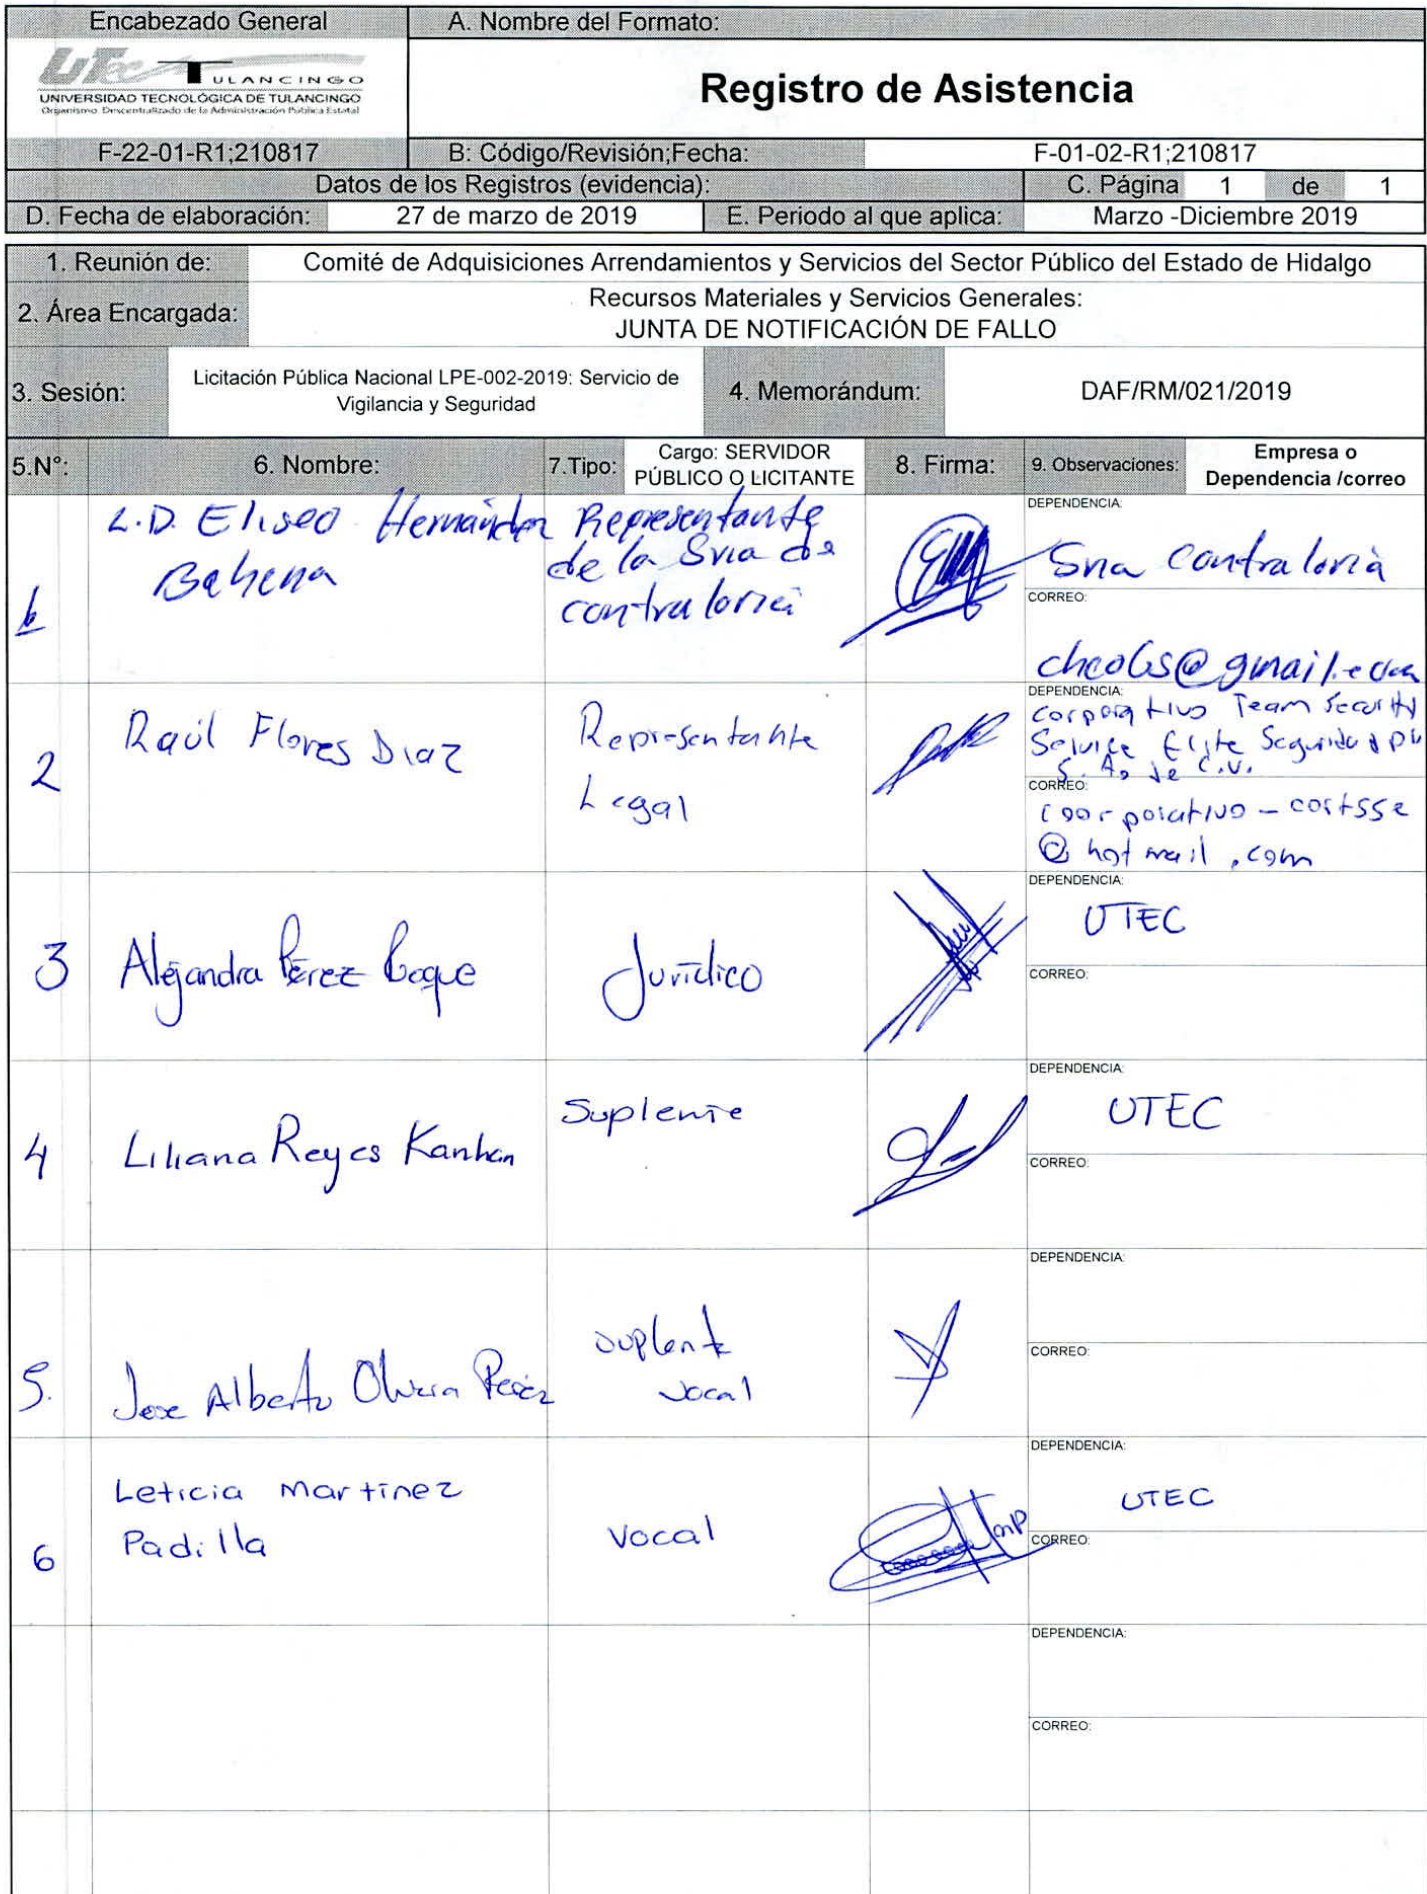 Encabezado General
A. Nombre del Formato:
UTec TULANCINGO
UNIVERSIDAD TECNOLÓGICA DE TULANCINGO
Organismo Descentralizado de la Administración Pública Estatal
Registro de Asistencia
F-22-01-R1;210817
B: Código/Revisión;Fecha:
F-01-02-R1;210817
Datos de los Registros (evidencia):
C. Página 1 de 1
D. Fecha de elaboración: 27 de marzo de 2019
E. Periodo al que aplica: Marzo -Diciembre 2019
1. Reunión de: Comité de Adquisiciones Arrendamientos y Servicios del Sector Público del Estado de Hidalgo
2. Área Encargada:
Recursos Materiales y Servicios Generales:
JUNTA DE NOTIFICACIÓN DE FALLO
3. Sesión:
Licitación Pública Nacional LPE-002-2019: Servicio de
Vigilancia y Seguridad
4. Memorándum: DAF/RM/021/2019
5.N°: 6. Nombre: 7.Tipo:
Cargo: SERVIDOR
PÚBLICO O LICITANTE
8. Firma: 9. Observaciones:
Empresa o
Dependencia /correo
L.D. Eliseo Hernández
Bahena
Representante
de la Sria de
contraloria
DEPENDENCIA:
Sria contraloria
CORREO:
@gmail.com
2 Raúl Flores Diaz
Representante
Legal
DEPENDENCIA:
Corporativo Team Security
Service Elite Seguridad
S.A. de C.V.
CORREO:
coorporativo-cortsse
@hotmail.com
3 Alejandra Pérez Jurídico
DEPENDENCIA:
UTEC
CORREO:
4 Liliana Reyes Suplente
DEPENDENCIA:
UTEC
CORREO:
5. Jose Alberto Olvera Perez
suplente
vocal
DEPENDENCIA:
CORREO:
6 Leticia Martínez
Padilla
Vocal
DEPENDENCIA:
UTEC
CORREO:
DEPENDENCIA:
CORREO: